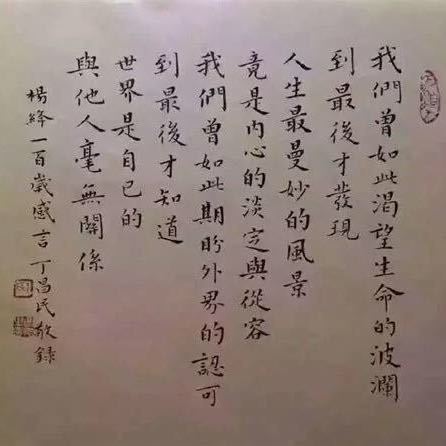 我們曾如此渴望生命的波瀾
到最後才發現
人生最曼妙的風景
竟是內心的淡定與從容
我們曾如此期盼外界的認可
到最後才知道
世界是自己的
與他人毫無關係
楊絳一百歲感言丁昌民敬錄